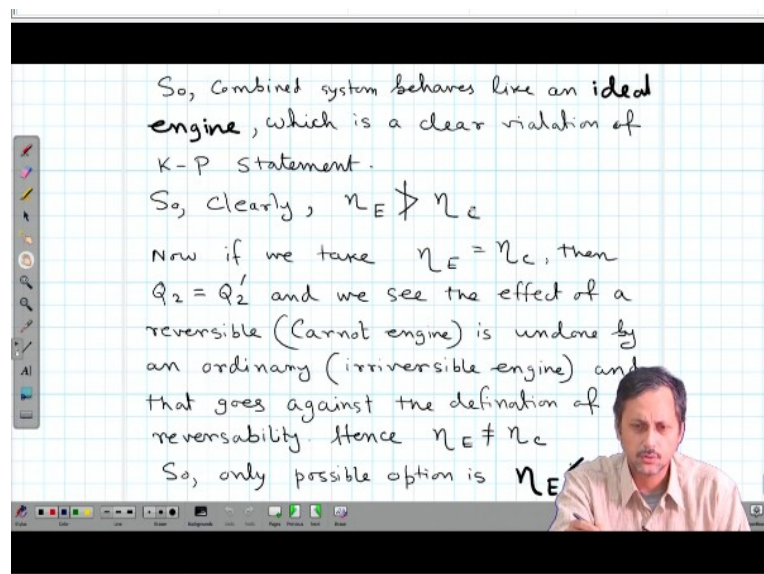 So, Combined system behaves like an ideal
engine, which is a clear vialation of
K-P Statement.
So, Clearly, η_E ≯ η_C
Now if we take η_E = η_C, then
Q_2 = Q_2' and we see the effect of a
reversible (Carnot engine) is undone by
an ordinary (irriversible engine) and
that goes against the defination of
reversability. Hence η_E ≠ η_C
So, only possible option is η_E